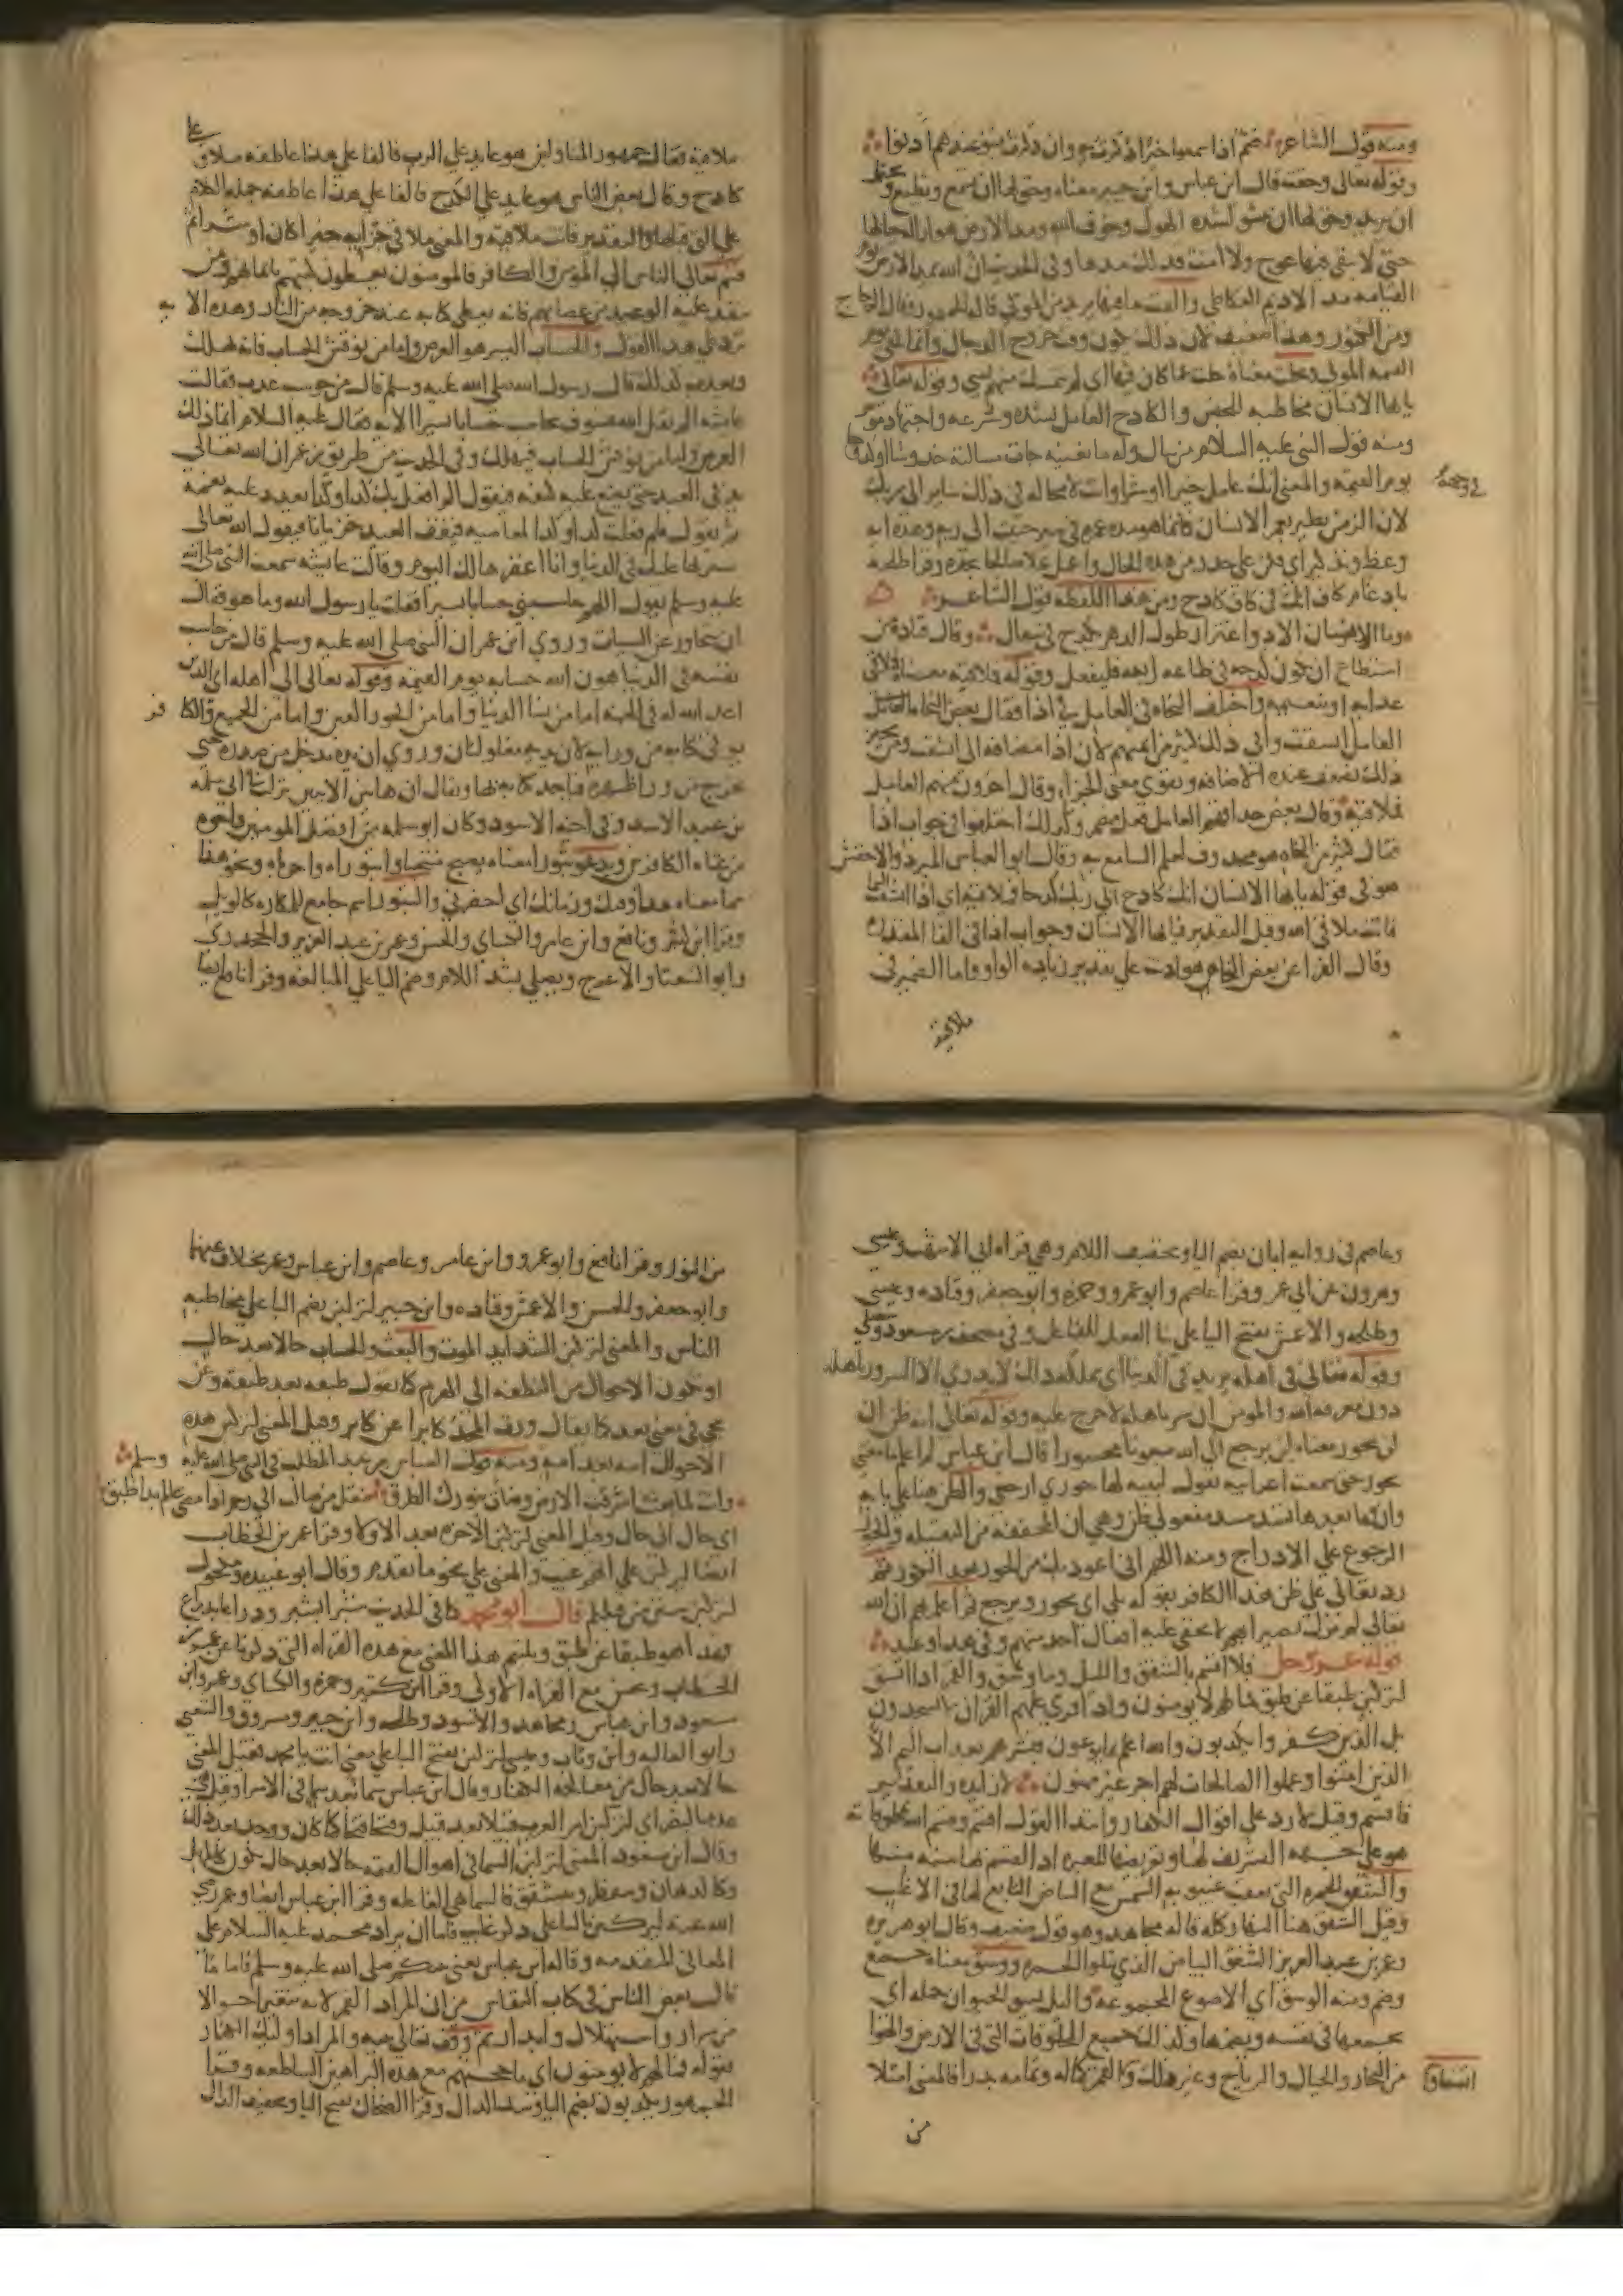 ومنه قول الشاعر صم اذا سمعوا خيرا ذكرت به وان ذكرت بسوء عندهم اذنوا
وقوله تعالى وحقت قال ابن عباس وابن جبير معناه وحق لها ان تسمع وتطيع و
ان يريد وحق لها ان تنشق لشدة الهول وخوف الله ومد الارض هو ازالة جبالها
حتى لا يبقى فيها عوج ولا امت فذلك مدها وفي الحديث ان الله يمد الارض يوم
القيامة مد الاديم العكاظي والقت ما فيها يريد من الموتى قاله الجمهور وقال الزجاج
ومن الكنوز وهذا ضعيف لان ذلك يكون وقت خروج الدجال وانما تلقي يوم
القيمة الموتى وتخلت معناه خلت عما كان فيها اي لم تتمسك منهم بشي وقوله تعالى
يايها الانسان مخاطبة للجنس والكادح العامل بشدة وسرعة واجتهاد موثر
ومنه قول النبي عليه السلام من سال وله ما يغنيه جات مسالته خدوشا او كدوحا
في وجهه
يوم القيمة والمعنى انك عامل خيرا او شرا وانت لا محالة في ذلك ساير الى ربك
لان الزمن يطير بعمر الانسان فانما هو مدة عمره في سير حثيث الى ربه وهذه اية
وعظ وتذكير اي فكن على حذر من هذه الحال واعمل عملا صالحا تجده وقرا طلحة
بادغام كاف انك في كاف كادح ومن هذه اللفظة قول الشاعر
وما الانسان الا ذو اغترار طول الدهر يكدح في سفال وقال قتادة من
استطاع ان يكون كدحه في طاعة ربه فليفعل وقوله فملاقيه معناه فملاقي
عذابه او تنعيمه واختلف النحاة في العامل في اذا فقال بعض النحاة العامل
العامل انشقت وابى ذلك كثير من ايمتهم لان اذا مضافة الى انشقت ومن يجيز
ذلك تضعف عنده الاضافة ويقوي معنى الجزا وقال اخرون منهم العامل
فملاقيه وقال بعض حذاقهم العامل فعل مضمر وكذلك اختلفوا في جواب اذا
فقال كثير من النحاة هو محذوف لعلم السامع به وقال ابو العباس المبرد والاخفش
هو في قوله يايها الانسان انك كادح الى ربك كدحا فملاقيه اي اذا انشقت السما
فانت ملاقي الله وقيل التقدير فيايها الانسان وجواب اذا في الفا المقدرة
وقال الفرا عن بعض النحاة هو اذنت على تقدير زيادة الواو واما الضمير في
ملاقيه
ملاقيه فقال جمهور المتاولين هو عايد على الرب فالفا على هذا عاطفة ملاق على
كادح وقال بعض الناس هو عايد على الكدح فالفا على هذا عاطفة جملة الكلام
على التي قبلها والتقدير فانت ملاقيه والمعنى ملاقي جزايه خيرا كان او شرا ثم
قسم تعالى الناس الى المومن والكافر فالمومنون يعطون كتبهم بايمانهم ومن
ينفذ عليه الوعيد من عصاتهم فانه يعطى كتابه عند خروجه من النار وهذه الاية
ترد على هذا القول والحساب اليسير هو العرض واما من نوقش الحساب فانه يهلك
ويعذب كذلك قال رسول الله صلى الله عليه وسلم قال من حوسب عذب فقالت
عايشة الم يقل الله فسوف يحاسب حسابا يسيرا الاية فقال عليه السلام انما ذلك
العرض واما من نوقش الحساب فيهلك وفي الحديث من طريق بن عمر ان الله تعالى
يدني العبد حتى يضع عليه كنفه فيقول الم افعل بك كذا وكذا يعدد عليه نعمه
ثم يقول فلم فعلت كذا وكذا لمعاصيه فيقف العبد حزيانا فيقول الله تعالى
سترتها عليك في الدنيا وانا اغفرها لك اليوم وقالت عايشة سمعت النبي صلى الله
عليه وسلم يقول اللهم حاسبني حسابا يسيرا فقلت يا رسول الله وما هو فقال
ان يتجاوز عن السيات وروي ابن عمر ان النبي صلى الله عليه وسلم قال من حاسب
نفسه في الدنيا هون الله حسابه يوم القيمة وقوله تعالى الى اهله اي الذين
اعد الله له في الجنة اما من نسا الدنيا واما من الحور العين واما من الجميع والكافر
يوتى كتابه من ورايه لان يديه مغلولتان وروي ان يده تدخل من صدره حتى
تخرج من ورا ظهره فياخذ كتابه بها ويقال ان هاتين الايتين نزلتا في ابي سلمة
بن عبد الاسد وفي اخيه الاسود وكان ابو سلمة من افضل المومنين واخوه
من عتاة الكافرين ويدعو ثبورا معناه يصيح منتحبا واثبوراه واحزناه ونحو هذا
مما معناه هذا وقتك وزمانك اي احضرني والثبور اسم جامع للمكاره كالويل
وقرا ابن كثير ونافع وابن عامر والكساي والحسن وعمر بن عبد العزيز والجحدري
وابو الشعثا والاعرج ويصلى بشد اللام وضم اليا على المبالغة وقرا نافع ايضا
وعاصم في رواية ابان بضم اليا وتخفيف اللام وهي قراة ابي الاشهب وعيسى
وهرون عن ابي عمر وقرا عاصم وابو عمرو وحمزة وابو جعفر وقتادة وعيسى
وطلحة والاعمش بفتح اليا على بنا الفعل للفاعل وفي مصحف بن مسعود وسيصلى
وقوله تعالى في اهله يريد في الدنيا اي تملكه ذلك لا يدري الا السرور باهله
دون معرفة الله والمومن ان سر باهله لا حرج عليه وقوله تعالى انه ظن ان
لن يحور معناه لن يرجع الى الله مبعوثا محشورا قال ابن عباس لم اعلم ما معنى
يحور حتى سمعت اعرابية تقول لبنية لها حوري اي ارجعي والظن هنا على بابه
وان وما بعدها تسد مسد مفعولي ظن وهي ان المخففة من الثقيلة والحور
الرجوع على الادراج ومنه اللهم اني اعوذ بك من الحور بعد الكور ثم
رد تعالى على ظن هذا الكافر بقوله بلى اي يحور ويرجع ثم اعلمهم ان الله
تعالى لم يزل بصيرا بهم لا تخفى عليه افعال احد منهم وفي هذا وعيد
قوله عز وجل فلا اقسم بالشفق والليل وما وسق والقمر اذا اتسق
لتركبن طبقا عن طبق فما لهم لا يومنون واذا قري عليهم القران لا يسجدون
بل الذين كفروا يكذبون والله اعلم بما يوعون فبشرهم بعذاب اليم الا
الذين امنوا وعملوا الصالحات لهم اجر غير ممنون لا زايدة والتقدير
فاقسم وقيل لا رد على اقوال الكفار وابتدا القول اقسم وقسم الله بمخلوقاته
هو على جهة التشريف لها وتعريضها للعبرة اذ القسم بها منبه منها
والشفق الحمرة التي تعقب غيبوبة الشمس مع البياض التابع لها في الاغلب
وقيل الشفق هنا النهار كله قاله مجاهد وهو قول ضعيف وقال ابو هريرة
وعمر بن عبد العزيز الشفق البياض الذي يتلوا الحمرة ووسق معناه جمع
وضم ومنه الوسق اي الاصوع المجموعة والليل يسق الحيوان جملة اي
يجمعها في نفسه ويضمها وكذلك جميع المخلوقات التي في الارض والهوا
من البحار والجبال والرياح وغير ذلك واتساق القمر كماله وتمامه بدرا فالمعنى امتلا
من
من النور وقرا نافع وابو عمرو وابن عامر وعاصم وابن عباس وعمر بخلاف عنهما
وابو جعفر والحسن والاعمش وقتادة وابن جبير لتركبن بضم البا على مخاطبة
الناس والمعنى لتركبن الشدايد الموت والبعث والحساب حالا بعد حال
او تكون الاحوال من النطفة الى الهرم كما تقول طبقة بعد طبقة وعن
تجي في معنى بعد كما يقال ورث المجد كابرا عن كابر وقيل المعنى لتركبن هذه
الاحوال امة بعد امة ومنه قول العباس بن عبد المطلب في النبي صلى الله عليه وسلم
وانت لما بعثت اشرقت الارض وضات بنورك الطرق تنقل من صالب الى رحم اذا مضى عالم بدا طبق
اي حال الى حال وقيل المعنى لتركبن الاخرة بعد الاولى وقرا عمر بن الخطاب
ايضا ليركبن على انهم غيب والمعنى على نحو ما تقدم وقال ابو عبيدة ومكحول
لتركبن سنن من قبلكم قال ابو محمد كما في الحديث شبرا بشبر وذراعا بذراع
فهذا هو طبق عن طبق ويلتيم هذا المعنى مع هذه القراة التي ذكرنا عن عمر بن
الخطاب ويحسن مع القراة الاولى وقرا ابن كثير وحمزة والكساي وعمر وابن
مسعود وابن عباس ومجاهد والاسود وطلحة وابن جبير ومسروق والشعبي
وابو العالية وابن وثاب وعيسى لتركبن بفتح البا على معنى انت يا محمد فقيل المعنى
حالا بعد حال من معالجة الكفار وقال ابن عباس سما بعد سما في الاسرا وقيل هي
عدة بالنصر اي لتركبن امر العرب قبيلا بعد قبيل وفتحا فتحا كما كان ووجد بعد ذلك
وقال ابن مسعود المعنى لتركبن السما في اهوال القيمة حالا بعد حال تكون كالمهل
وكالدهان وتنفطر وتتشقق فالسما هي الفاعلة وقرا ابن عباس ايضا وعمر رضي
الله عنه ليركبن باليا على ذكر غايب فاما ان يراد محمد عليه السلام على
المعاني المتقدمة وقاله ابن عباس يعني نبيكم صلى الله عليه وسلم فاما ما
قال بعض الناس في كتاب النقاش من ان المراد القمر لانه يتغير احوالا
من سرار واستهلال وابدار ثم وقف تعالى نبيه والمراد اوليك الكفار
بقوله فما لهم لا يومنون اي ما حجتهم مع هذه البراهين الساطعة وقرا
الجمهور يكذبون بضم اليا وشد الذال وقرا الضحاك بفتح اليا وتخفيف الذال